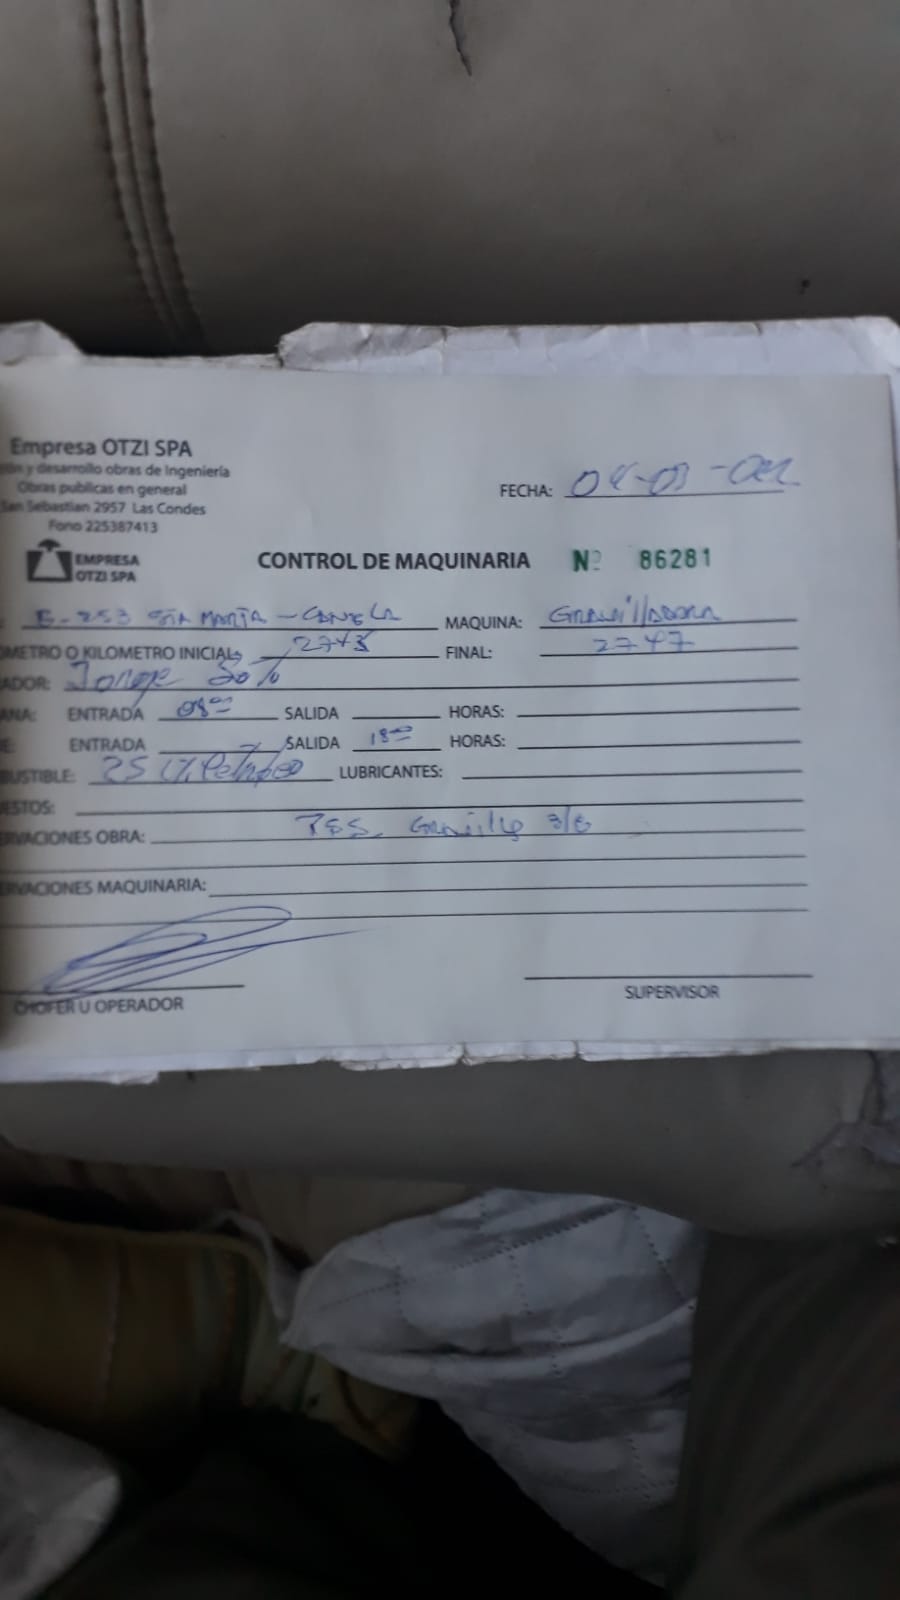 Empresa OTZI SPA
ión y desarrollo obras de Ingeniería
Obras publicas en general
San Sebastian 2957 Las Condes
Fono 225387413
FECHA: 04-03-022
EMPRESA
OTZI SPA
CONTROL DE MAQUINARIA Nº 86281
: E-253 Sta MARTA - CANELA MAQUINA: GRAVILLADORA
ÓMETRO O KILOMETRO INICIAL: 2743 FINAL: 2747
ADOR: Jorge Soto
ANA: ENTRADA 08⁰⁰ SALIDA HORAS:
E: ENTRADA SALIDA 18⁰⁰ HORAS:
BUSTIBLE: 25 Lt. Petroleo LUBRICANTES:
ESTOS:
ERVACIONES OBRA: Gravilla 3/8
ERVACIONES MAQUINARIA:
CHOFER U OPERADOR SUPERVISOR